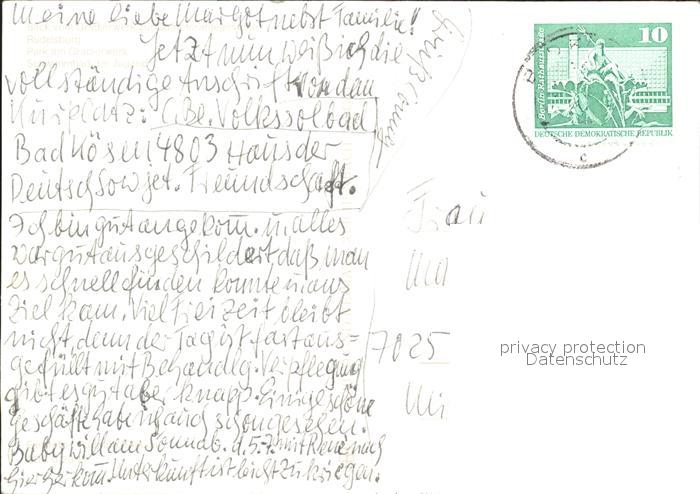 Meine liebe Margot nebst Familie!
Jetzt nun weiß ich die
vollständige Anschrift von dem
Kurplatz:
Volkssolbad
Bad Kösen 4803 Haus der
Deutsch Sowjet. Freundschaft.
Ich bin gut angekom. u. alles
war gut ausgeschildert daß man
es schnell finden konnte u. ans
Ziel kam. Viel Freizeit bleibt
nicht, denn der Tag ist fast aus=
gefüllt mit Behandlg. Verpflegung
gibt es gut aber knapp. Einige schöne
Geschäfte hab ich auch schon gesehen.
Baby will am Sonnab. d. 5.7. mit Rene nach
hierher kom. Unterkunft ist leicht zu kriegen.
Gruß
10
Berlin Rathausstrasse
DEUTSCHE DEMOKRATISCHE REPUBLIK
c
Frau
Mar
7025
privacy protection
Datenschutz